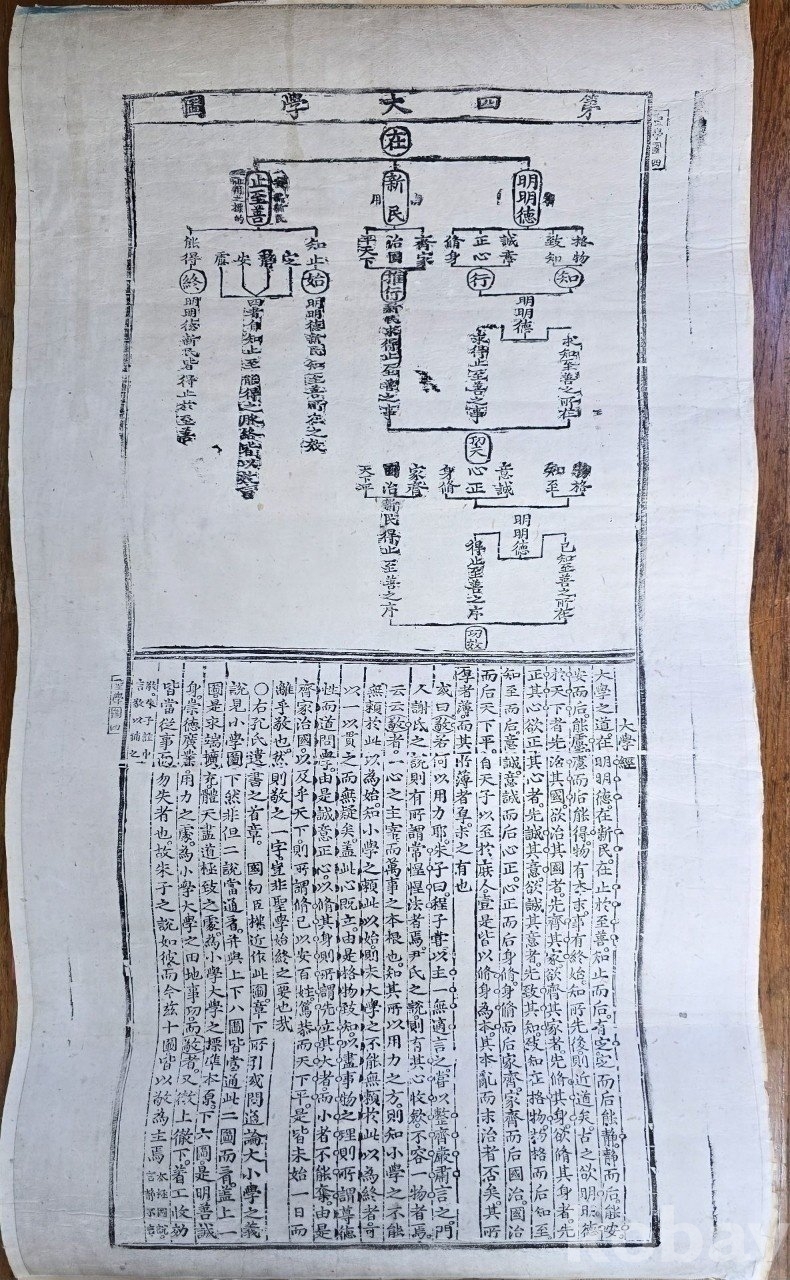 第四大學圖
聖學圖四
在
明明德
新民
止至善
格物
致知
誠意
正心
修身
齊家
治國
平天下
知止
定
靜
安
慮
能得
知
行
推行新民求得止至善之事
始明明德新民知至善所在之效
四者自知止至能得之脉絡皆以效言
終明明德新民皆得止於至善
明明德
求知至善之所在
求得止至善之事
物格
知至
意誠
心正
身修
家齊
國治
天下平
明明德
已知至善之所在
得止至善之序
新民得止至善之序
功效
大學經
大學之道在明明德在新民在止於至善知止而后有定定而后能靜靜而后能安
安而后能慮慮而后能得物有本末事有終始知所先後則近道矣古之欲明明德
於天下者先治其國欲治其國者先齊其家欲齊其家者先修其身欲修其身者先
正其心欲正其心者先誠其意欲誠其意者先致其知致知在格物物格而后知至
知至而后意誠意誠而后心正心正而后身修身修而后家齊家齊而后國治國治
而后天下平自天子以至於庶人壹是皆以修身為本其本亂而末治者否矣其所
厚者薄而其所薄者厚未之有也
或曰敬若何以用力耶朱子曰程子嘗以主一無適言之嘗以整齊嚴肅言之門
人謝氏之說則有所謂常惺惺法者焉尹氏之說則有其心收斂不容一物者焉
云云敬者一心之主宰而萬事之本根也知其所以用力之方則知小學之不能
無賴於此以為始知小學之賴此以始則夫大學之不能無賴於此以為終者可
以一以貫之而無疑矣蓋此心既立由是格物致知以盡事物之理則所謂尊德
性而道問學由是誠意正心以修其身則所謂先立其大者而小者不能奪由是
齊家治國以及乎天下則所謂修己以安百姓篤恭而天下平是皆未始一日而
離乎敬也然則敬之一字豈非聖學始終之要也哉
○右孔氏遺書之首章 國初臣權近作此圖章下所引或問通論大小學之義
說見小學圖下然非但二說當通看幷與上下八圖皆當通此二圖而看蓋上二
圖是求端擴充體天盡道極致之處為小學大學之標準本原下六圖是明善誠
身崇德廣業用力之處為小學大學之田地事功而敬者又徹上徹下著工收效
皆當從事而勿失者也故朱子之說如彼而今茲十圖皆以敬為主焉 太極圖說言靜不言
敬朱子註中言敬以補之
聖學圖四
kobay